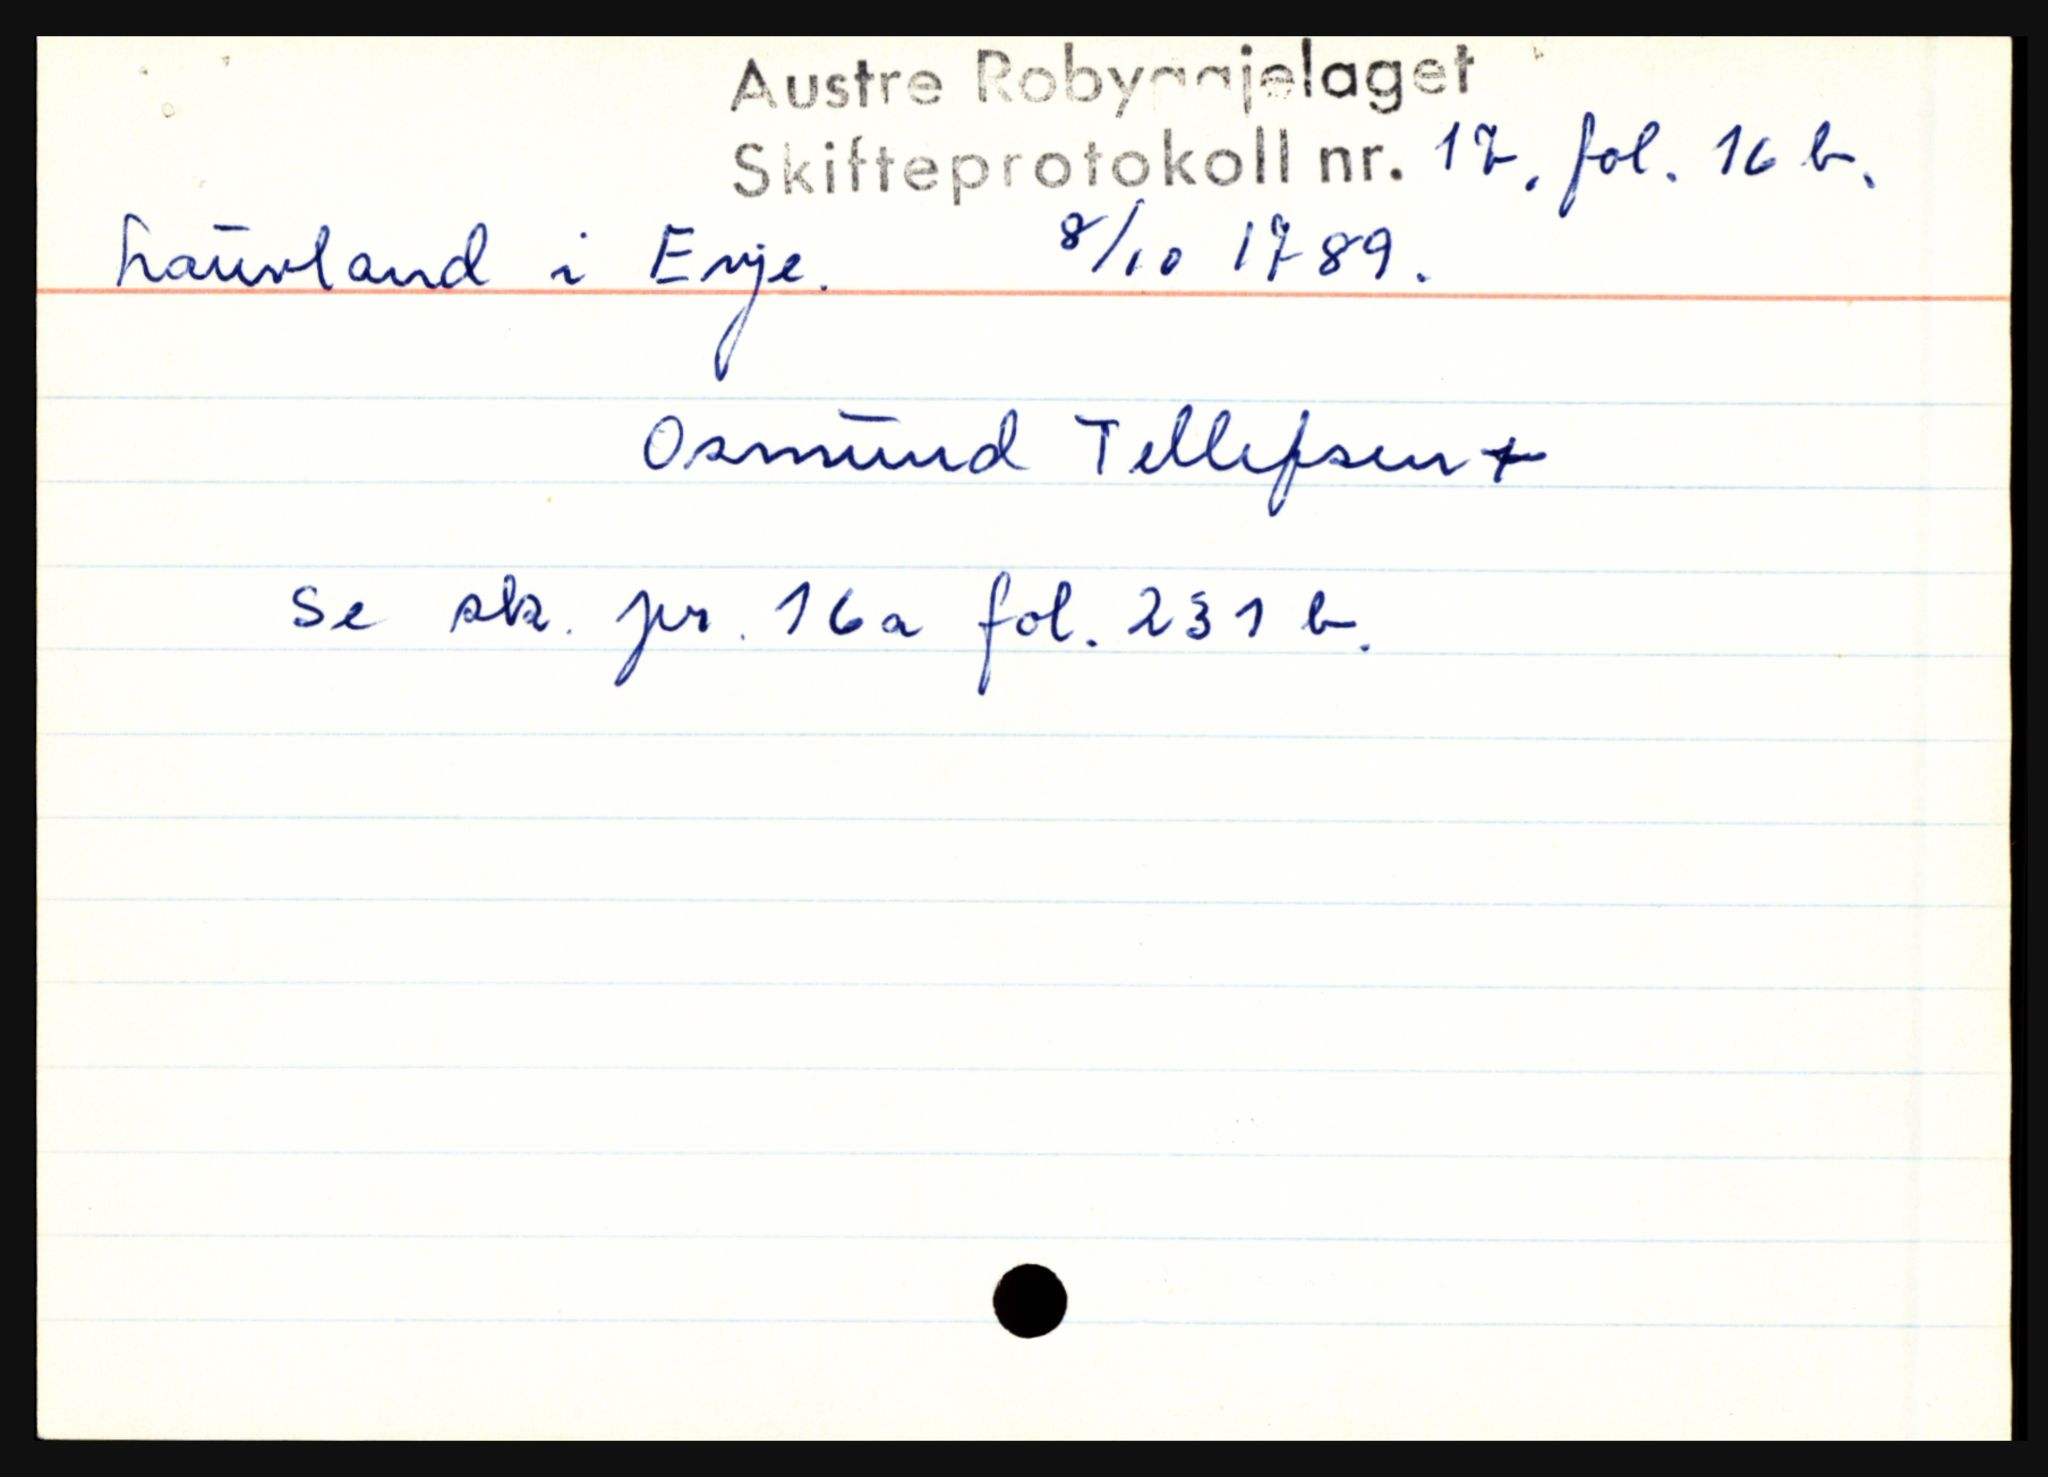 Austre Robyggjelaget
Skifteprotokoll nr. 17, fol. 16 b.
Laurland i Evje. 8/10 1789.
Osmund Tellefsen +
Se sk. pr. 16a fol. 231 b.